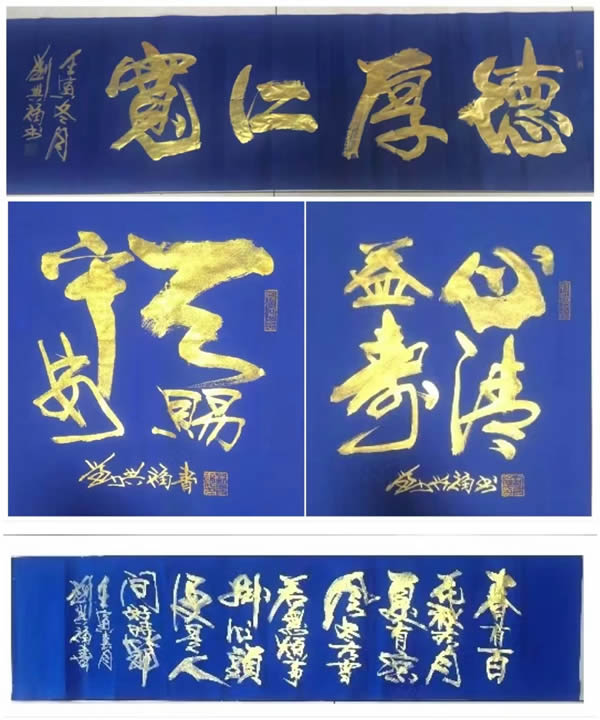 德厚仁寬
壬寅冬月
劉兴福书
天賜
宁安
劉兴福書
心清
益寿
劉兴福书
春有百
花秋有月
夏有凉
風冬有雪
若無煩事
掛心頭
便是人
间好時節
壬寅冬月
劉兴福書